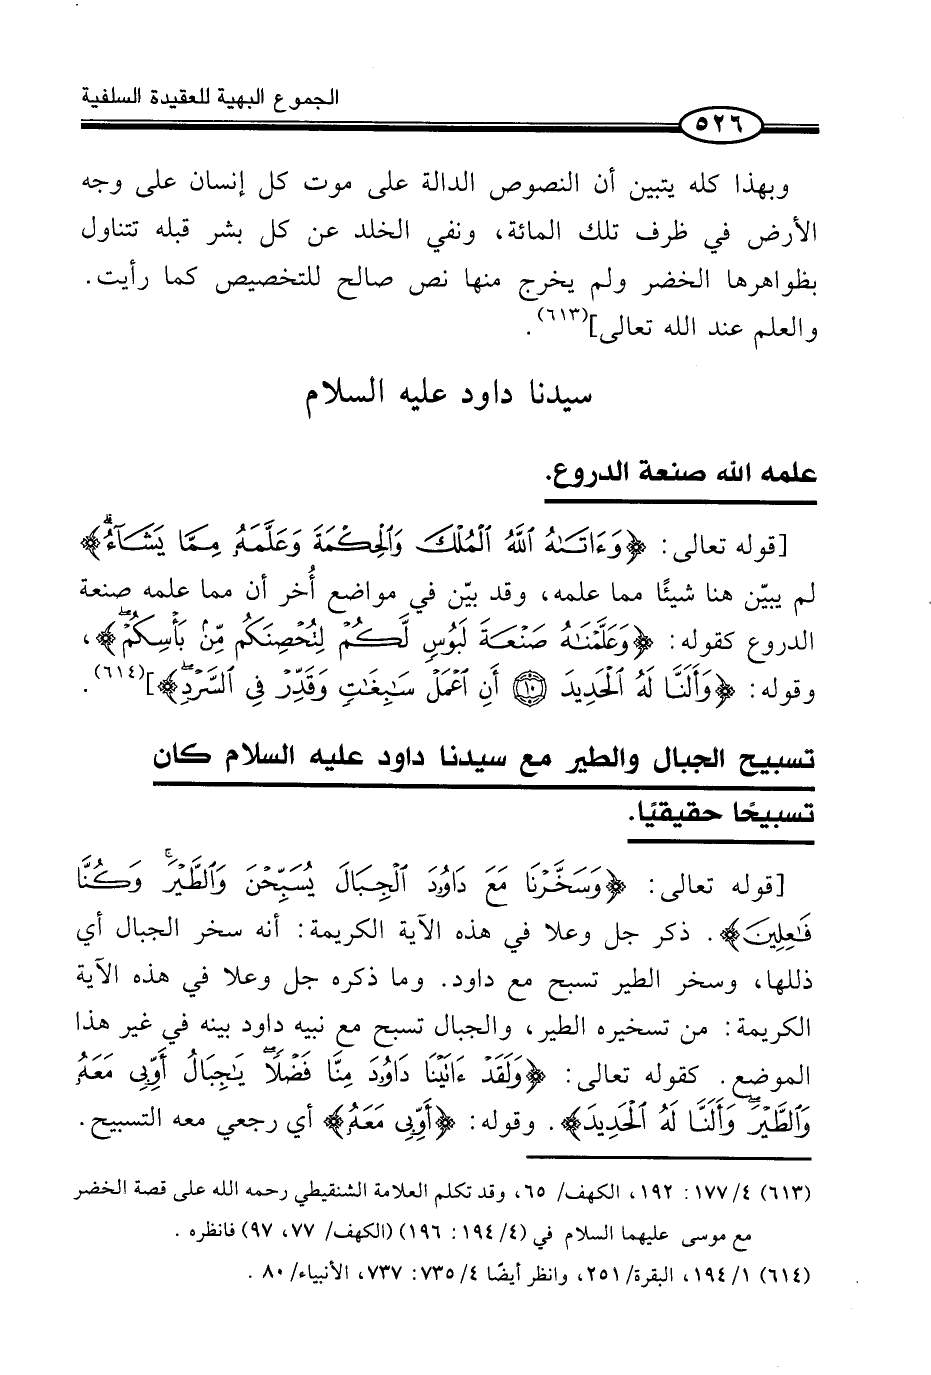 الجموع البهية للعقيدة السلفية
٥٢٦
وبهذا كله يتبين أن النصوص الدالة على موت كل إنسان على وجه
الأرض في ظرف تلك المائة، ونفي الخلد عن كل بشر قبله تتناول
بظواهرها الخضر ولم يخرج منها نص صالح للتخصيص كما رأيت.
والعلم عند الله تعالى](٦١٣).
سيدنا داود عليه السلام
علمه الله صنعة الدروع.
[قوله تعالى: ﴿وَءَاتَىٰهُ ٱللَّهُ ٱلْمُلْكَ وَٱلْحِكْمَةَ وَعَلَّمَهُۥ مِمَّا يَشَآءُۗ﴾
لم يبيّن هنا شيئًا مما علمه، وقد بيّن في مواضع أُخر أن مما علمه صنعة
الدروع كقوله: ﴿وَعَلَّمْنَٰهُ صَنْعَةَ لَبُوسٍ لَّكُمْ لِتُحْصِنَكُم مِّنۢ بَأْسِكُمْۖ﴾،
وقوله: ﴿وَأَلَنَّا لَهُ ٱلْحَدِيدَ ۝١٠ أَنِ ٱعْمَلْ سَٰبِغَٰتٍ وَقَدِّرْ فِى ٱلسَّرْدِۖ﴾](٦١٤).
تسبيح الجبال والطير مع سيدنا داود عليه السلام كان
تسبيحًا حقيقيًا.
[قوله تعالى: ﴿وَسَخَّرْنَا مَعَ دَاوُۥدَ ٱلْجِبَالَ يُسَبِّحْنَ وَٱلطَّيْرَۚ وَكُنَّا
فَٰعِلِينَ﴾. ذكر جل وعلا في هذه الآية الكريمة: أنه سخر الجبال أي
ذللها، وسخر الطير تسبح مع داود. وما ذكره جل وعلا في هذه الآية
الكريمة: من تسخيره الطير، والجبال تسبح مع نبيه داود بينه في غير هذا
الموضع. كقوله تعالى: ﴿وَلَقَدْ ءَاتَيْنَا دَاوُۥدَ مِنَّا فَضْلًاۖ يَٰجِبَالُ أَوِّبِى مَعَهُۥ
وَٱلطَّيْرَۖ وَأَلَنَّا لَهُ ٱلْحَدِيدَ﴾. وقوله: ﴿أَوِّبِى مَعَهُۥ﴾ أي رجعي معه التسبيح.
(٦١٣) ٤/ ١٧٧: ١٩٢، الكهف/ ٦٥، وقد تكلم العلامة الشنقيطي رحمه الله على قصة الخضر
مع موسى عليهما السلام في (٤/ ١٩٤: ١٩٦) (الكهف/ ٧٧، ٩٧) فانظره.
(٦١٤) ١/ ١٩٤، البقرة/ ٢٥١، وانظر أيضًا ٤/ ٧٣٥: ٧٣٧، الأنبياء/ ٨٠.